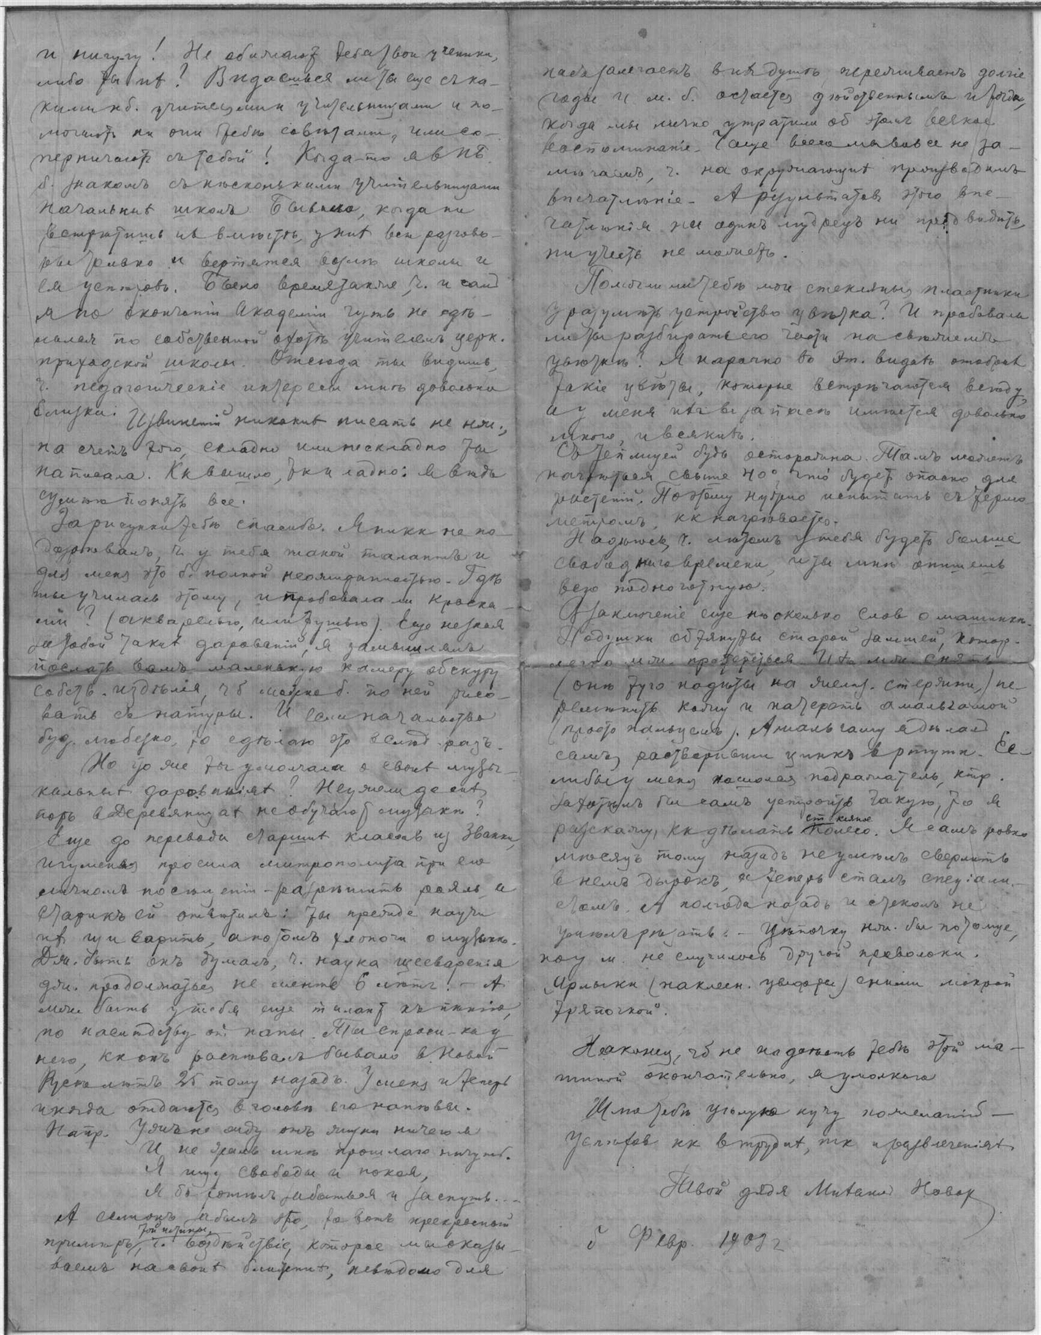 и ни гугу! Не обижают тебя твои ученики,
либо ты их? Видаешься ли ты еще съ ка-
кими нб. учителями и учительницами и по-
могают ли они тебѣ совѣтами, или со-
перничают съ тобой! Когда-то я в
б. знаком съ нѣсколькими учительницами
начальных школъ. Бывало, когда ни
встрѣтишь их вмѣстѣ, у них все разгово-
ры только и вертятся возлѣ школы и
ея успѣхов. Было время такое, ч. и сам
я по окончании Академии чуть не сдѣ-
лался по собственной охотѣ учителем церк.
приходской школы. Отсюда ты видишь,
ч. педагогические интересы мнѣ довольно
близки.
Извинений никаких писать не нж.,
на счетъ того, складно или нескладно ты
написала. Кк вышло, тк и ладно: я вѣдь
сумѣю понять все.
За рисунки тебѣ спасибо. Я никк не по-
дозрѣвалъ, ч. у тебя такой талантъ и
для меня это б. полной неожиданностью. Гдѣ
ты училась этому, и пробовала ли краска-
ми? (акварелью, или тушью). Еще не зная
за тобой таких дарований, я замышлял
послать вамъ маленькую камеру обскуру
собств. издѣлия, чб можно б. по ней рисо-
вать съ натуры. И если начальство
буд. любезно, то сдѣлаю это в слѣд. разъ.
Но что же ты умолчала о своих музы-
кальных дарованиях? Неужели до сих
поръ в Деревяницах не обучают музыкѣ?
Еще до перевода старших классъ из Званки,
игумения просила митрополита при его
личном посѣщении разрѣшить рояль, а
старикъ ей отвѣтилъ: ты прежде научи
их щи варить, а потомъ хлопочи о музыкѣ.
Дж. быть онъ думал, ч. наука щееварения
дж. продолжаться не менѣе 6 лѣтъ! - А
мож. быть у тебя еще талант къ пѣнию,
по наслѣдству от папы. Ты спроси-ка у
него, кк он распѣвал бывало в Новой
Русѣ лѣтъ 25 тому назадъ. У меня и теперь
иногда отдаются в головѣ его напѣвы.
Напр. Ужъ не жду отъ жизни ничего я
И не жаль мнѣ прошлаго ничуть.
Я ищу свободы и покоя,
Я б хотѣл забыться и заснуть...
А вот прекрасный
той истины,
примѣръ, ч. воздѣйствие, которое мы оказы-
ваемъ на своих ближних, невѣдомо для
нас залегаетъ в их душѣ, переживаетъ долгие
годы и м. б. остается дѣйственнымъ и тогда,
когда мы лично утратили об этом всякое
воспоминание. Чаще всего мы вовсе не за-
мѣчаем, ч. на окружающих производимъ
впечатлѣние. А результатов этого впе-
чатлѣния ни один мудрец ни предвидѣть,
ни учесть не может.
Помогли ли тебѣ мои стеклянныя пластинки
уразумѣть устройство цвѣтка? И пробовала
ли ты разбирать его части на свѣжем
цвѣткѣ? Я нарочно в эт. видах отобрал
такие цвѣты, которые встрѣчаются всюду,
а у меня их в запасѣ имѣется довольно
много, и всяких.
Съ теплицей будь осторожна. Там может
нагрѣться свыше 40°, что будет опасно для
растений. Поэтому нужно испытать съ термо-
метромъ, кк нагрѣвается.
Надѣюсь, ч. лѣтом у тебя будет больше
свободнаго времени, и ты мнѣ опишешь
всю подноготную.
В заключение еще нѣсколько слов о машинкѣ.
Подушки обтянуты старой замшей, котор.
легко мж. протереться. Их мж. снять
(они туго надѣты на желѣз. стержни), пе-
ремѣнить кожу и натереть амальгамой
(просто пальцем). Амальгаму я дѣлал
самъ, растворивши цинк в ртути. Ес-
либы у меня нашолся подражатель, ктр.
захотѣл бы сам устроить такую, то я
стеклянное
разскажу, кк дѣлать колесо. Я сам ровно
мѣсяц тому назадъ не умѣл сверлить
в нем дырок, а теперь стал специали-
стом. А полгода назадъ и стекол не
умѣл рѣзать. - Цѣпочку нж. бы потолще,
но у м. не случилось другой проволоки.
Ярлыки (наклеен. ) сними мокрой
тряпочкой.
Наконец, чб не надоѣсть тебѣ этой ма-
шиной окончательно, я умолкаю.
Шлю тебѣ цѣлую кучу пожеланий -
успѣхов кк в трудах, тк и развлечениях
Твой дядя Михаил
Февр. 1909 г